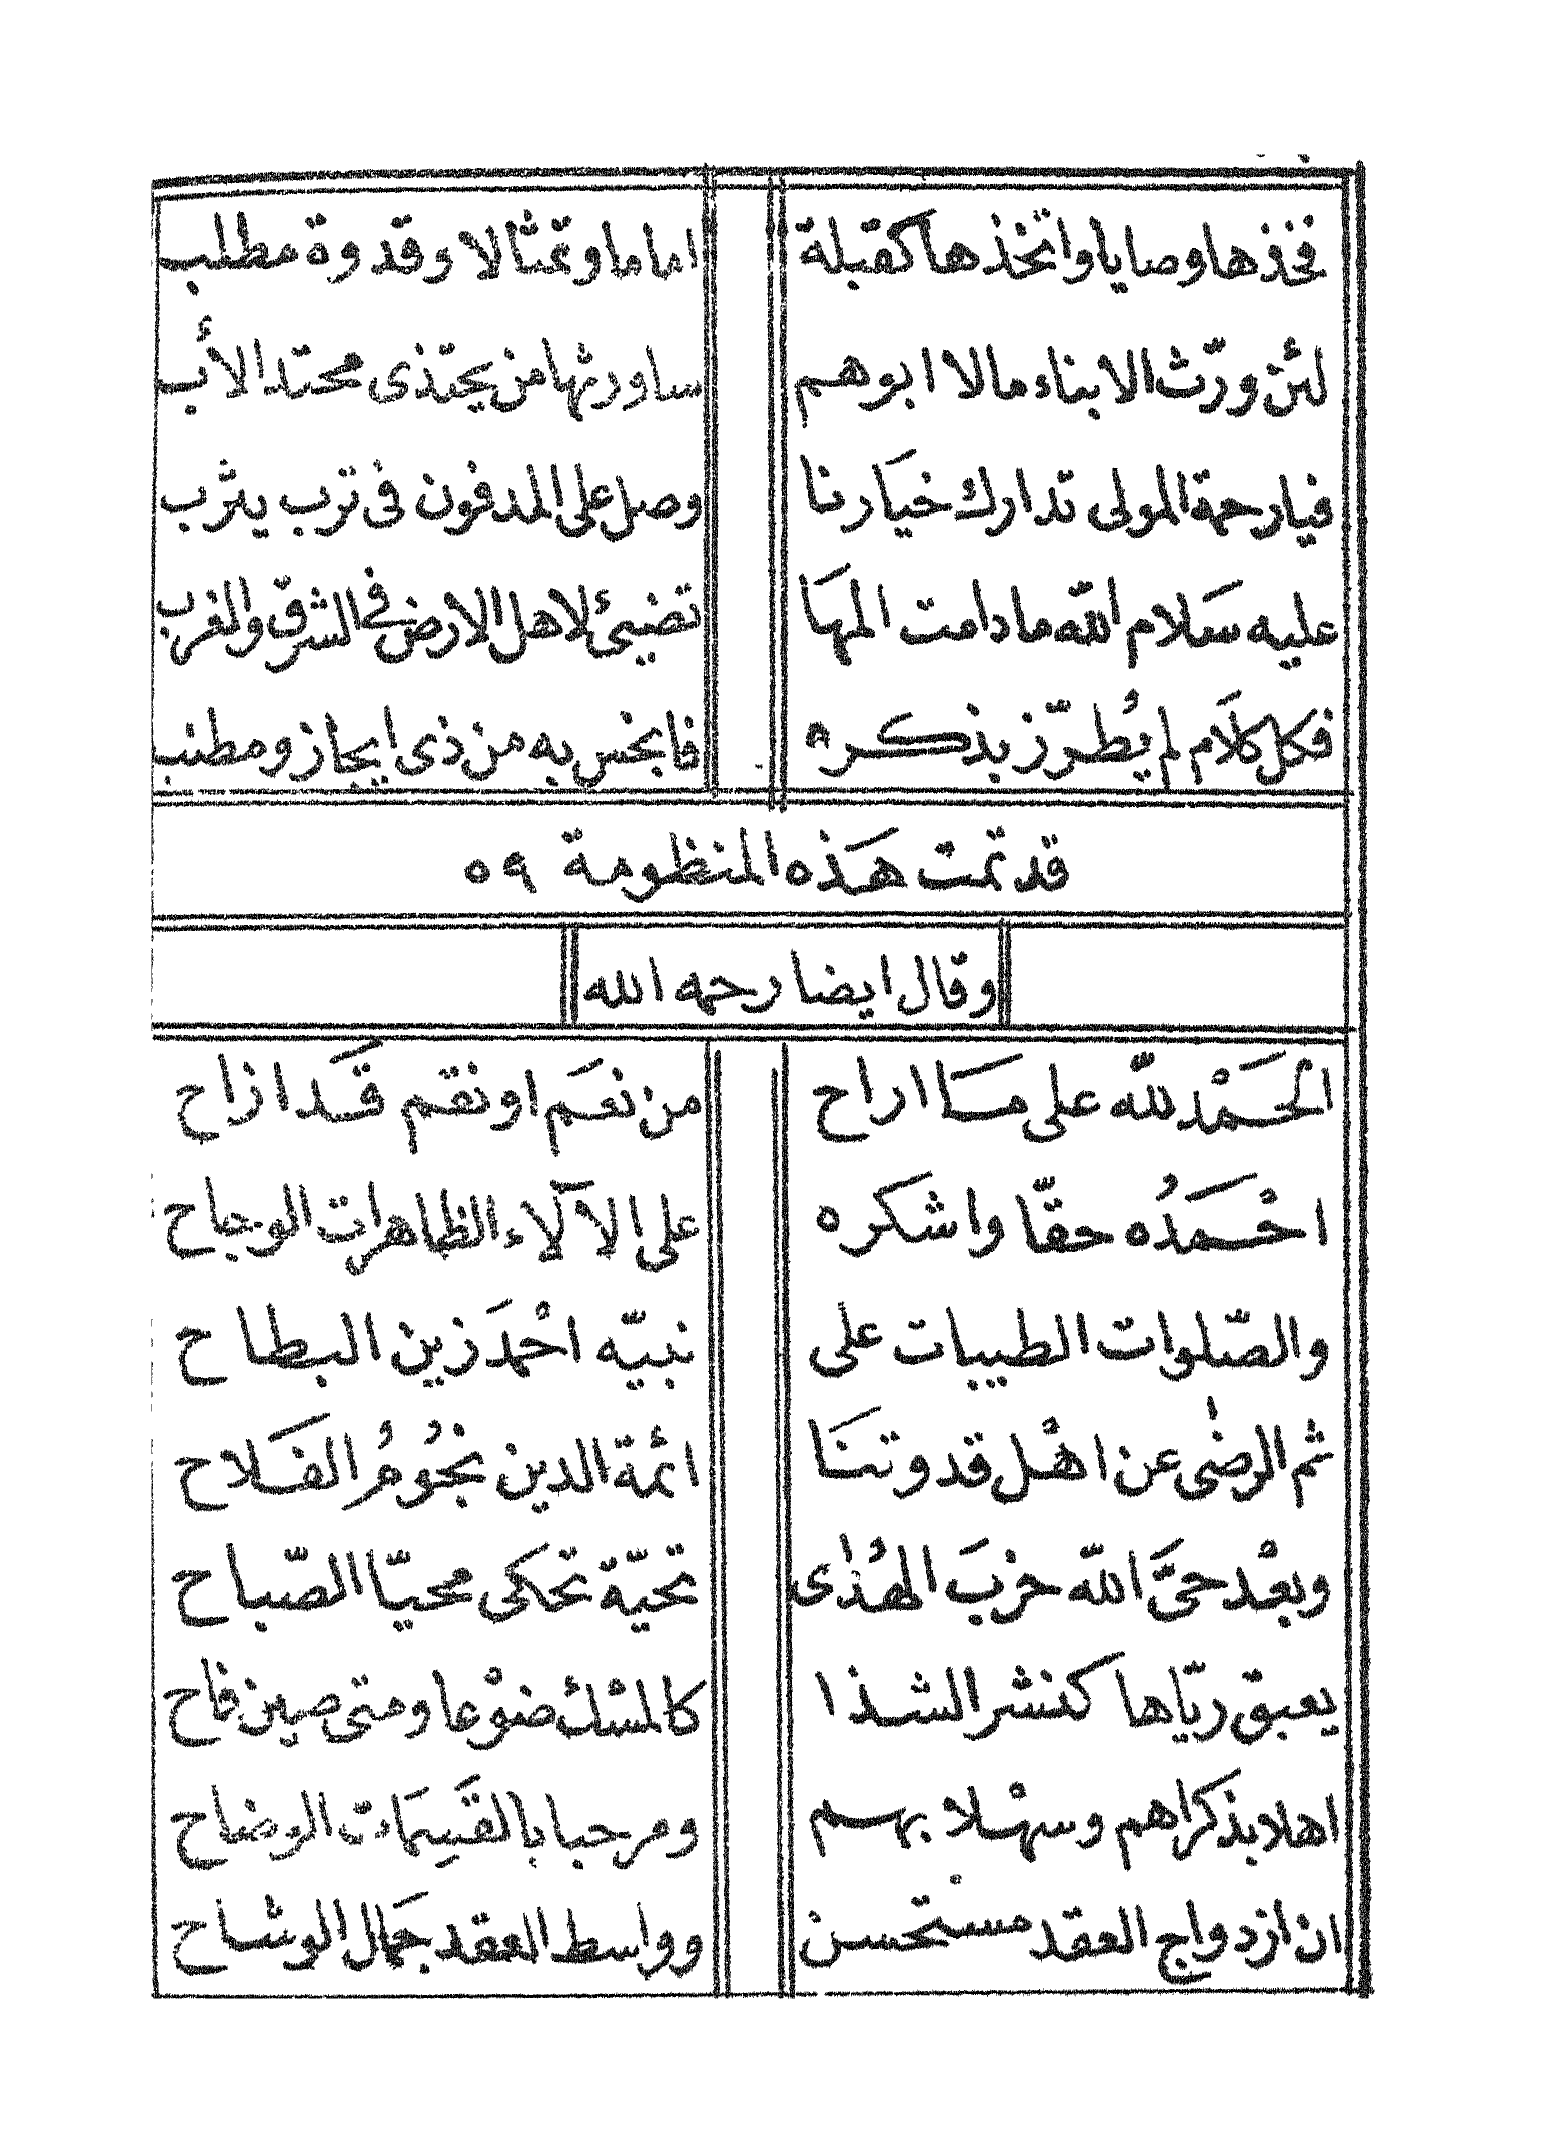 فخذها وصايا واتخذها كقبلة اماما وتمثالا وقدوة مطلب
لئن ورّث الابناء مالا ابوهم ساورثها من يحتذى محتد الأب
فيا رحمة المولى تدارك خيارنا وصل على المدفون فى ترب يثرب
عليه سَلام الله ما دامت المهَا تضيئ لاهل الارض فى الشرق والمغرب
فكل كلَام لم يُطرّز بذكره فابخس به من ذى ايجاز ومطنب
قد تمت هَذه المنظومة ٥٩
وقال ايضا رحمه الله
الْحَمْد لله على مَا اراح من نعَم او نقم قَد ازاح
احْمَدُه حقّا واشكره على الآلاء الظاهرات الوجاح
والصّلوات الطيبات على نبيّه احْمَد زين البطاح
ثم الرضٰى عن اهْل قدوتنَا ائمة الدين نجُومُ الفَلاح
وبعْد حىَّ الله حزبَ الهُدٰى تحيّة تحكى محيّا الصّباح
يعبق ريّاها كنشر الشذا كالمسْك ضوْعا ومتى صين فاح
اهلا بذكراهم وسهْلا بهم ومرحبا بالقَسِمَات الوضاح
ان ازدواج العقد مستحسن وواسط العقد جمَال الوشاح